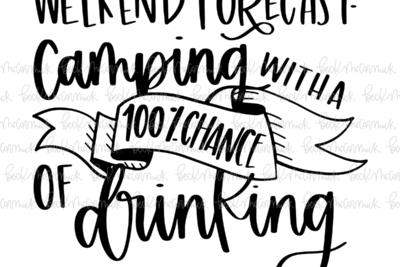 WEEKEND FORECAST:
Camping WITH A
100% CHANCE
OF drinking